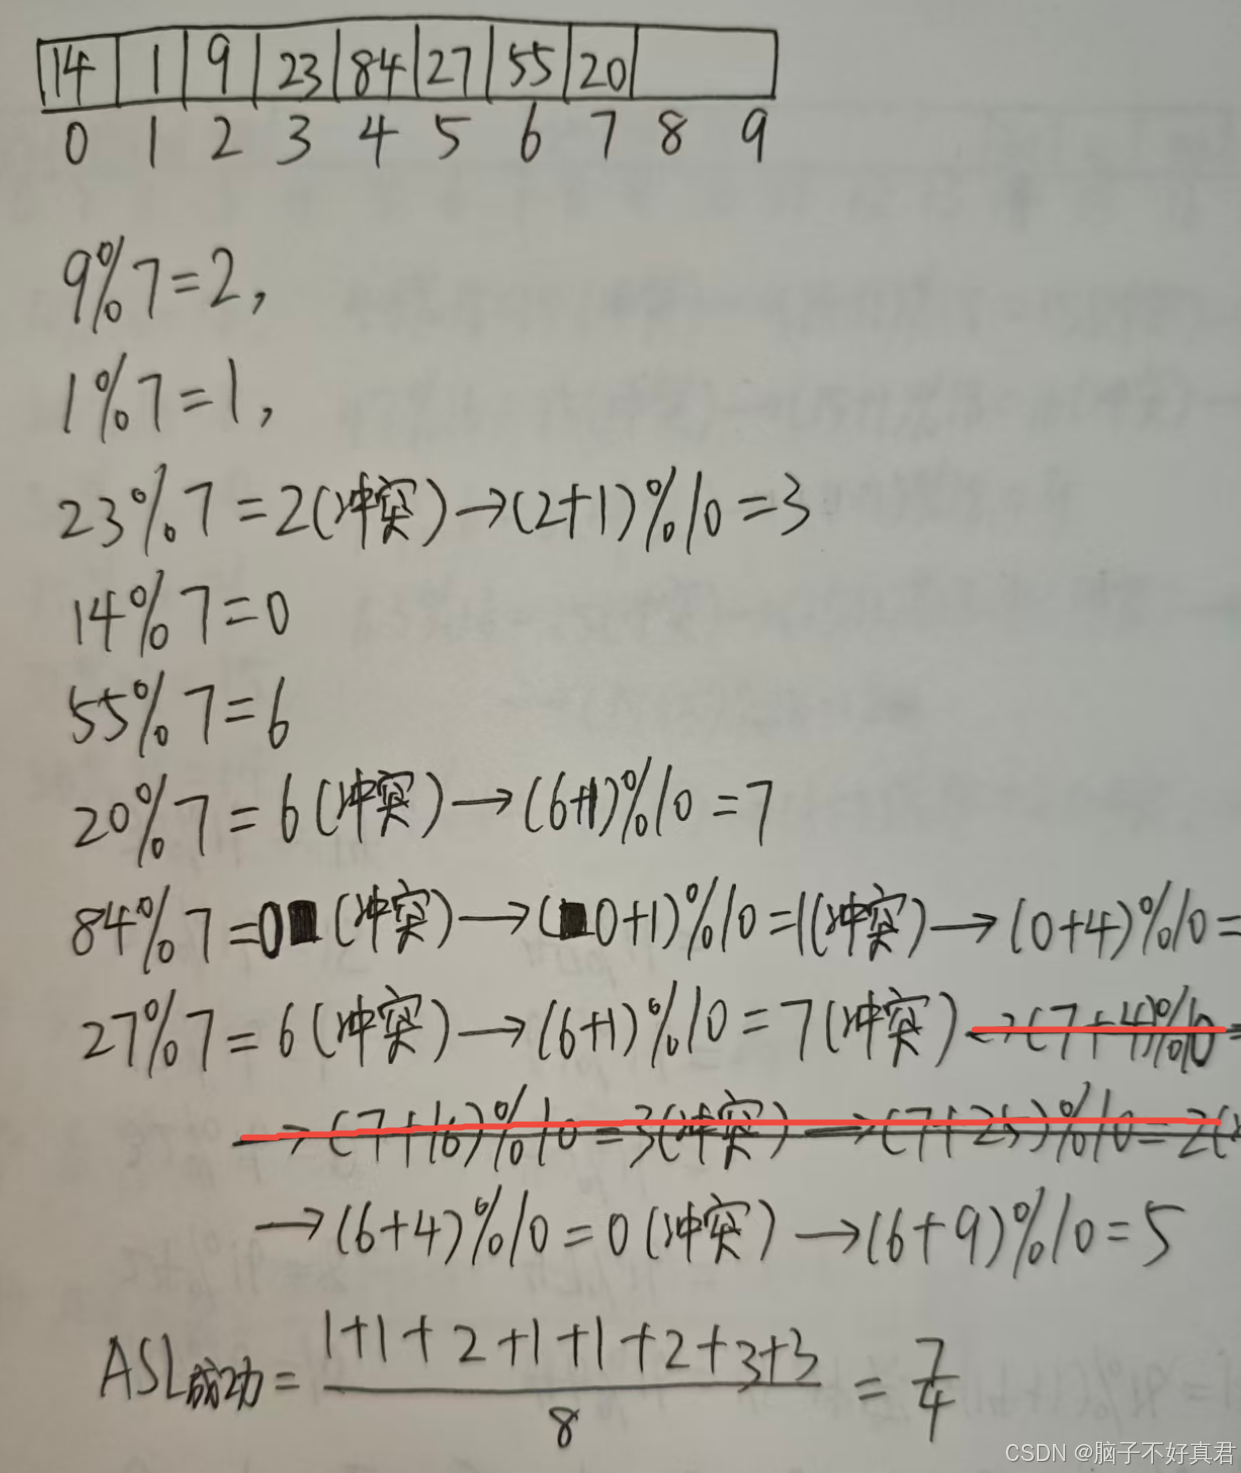 14 1 9 23 84 27 55 20
0 1 2 3 4 5 6 7 8 9
9%7=2,
1%7=1,
23%7=2(冲突)→(2+1)%10=3
14%7=0
55%7=6
20%7=6(冲突)→(6+1)%10=7
84%7=0(冲突)→(0+1)%10=1(冲突)→(0+4)%10=
27%7=6(冲突)→(6+1)%10=7(冲突)→(7+4)%10=
→(7+16)%10=3(冲突)→(7+25)%10=2(
→(6+4)%10=0(冲突)→(6+9)%10=5
ASL成功=1+1+2+1+1+2+3+3/8=7/4
CSDN @脑子不好真君